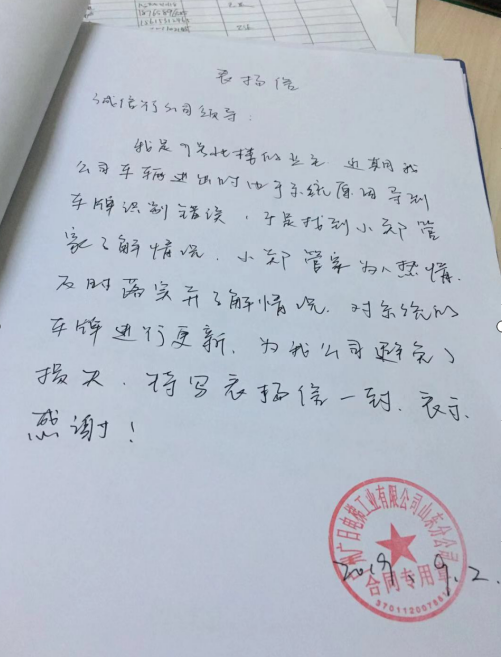 表扬信
诚信行公司领导：
我是7号北楼的业主 近期我
公司车辆进出时由于系统原因导到
车牌识别错误，于是找到小郑管
家了解情况，小郑管家为人热情.
及时落实并了解情况. 对系统的
车牌进行更新. 为我公司避免了
损失. 特写表扬信一封. 表示
感谢！
广日电梯工业有限公司山东分公司
合同专用章
2019. 9. 2.